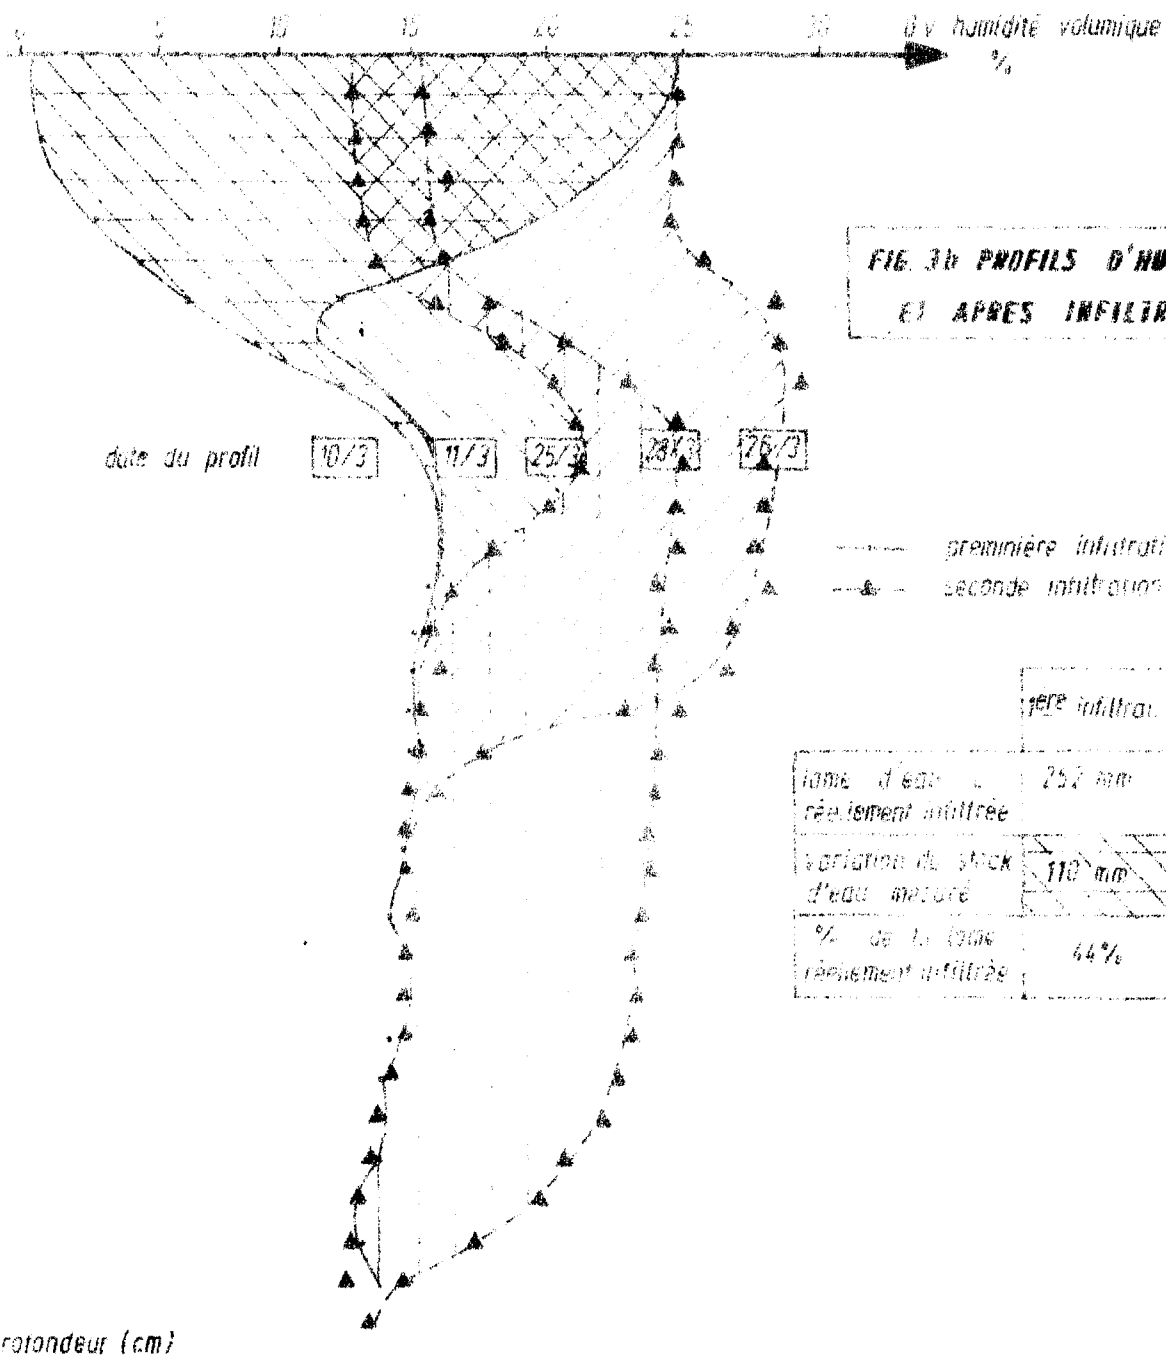 0 5 10 15 20 25 30 θv humidité volumique
%
FIG. 3b PROFILS D'HU
ET APRES INFILTR
date du profil 10/3 11/3 25/3 28/3 26/3
preminière infiltrati
seconde infiltration
1ère infiltrat
lame d'eau 252 mm
réellement infiltrée
variation du stock 110 mm
d'eau mesuré
% de la lame 44%
réellement infiltrée
rofondeur (cm)